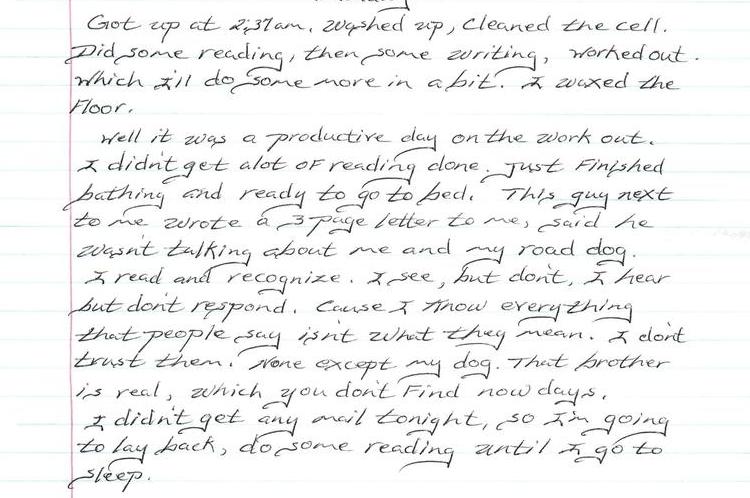 Got up at 2:37am, washed up, cleaned the cell.
Did some reading, then some writing, worked out.
Which I'll do some more in a bit. I waxed the
Floor.
Well it was a productive day on the work out.
I didn't get alot of reading done. Just Finished
bathing and ready to go to bed. This guy next
to me wrote a 3 page letter to me, said he
wasn't talking about me and my road dog.
I read and recognize. I see, but don't, I hear
but don't respond. Cause I know everything
that people say isn't what they mean. I don't
trust them. None except my dog. That brother
is real, which you don't Find now days.
I didn't get any mail tonight, so I'm going
to lay back, do some reading until I go to
sleep.